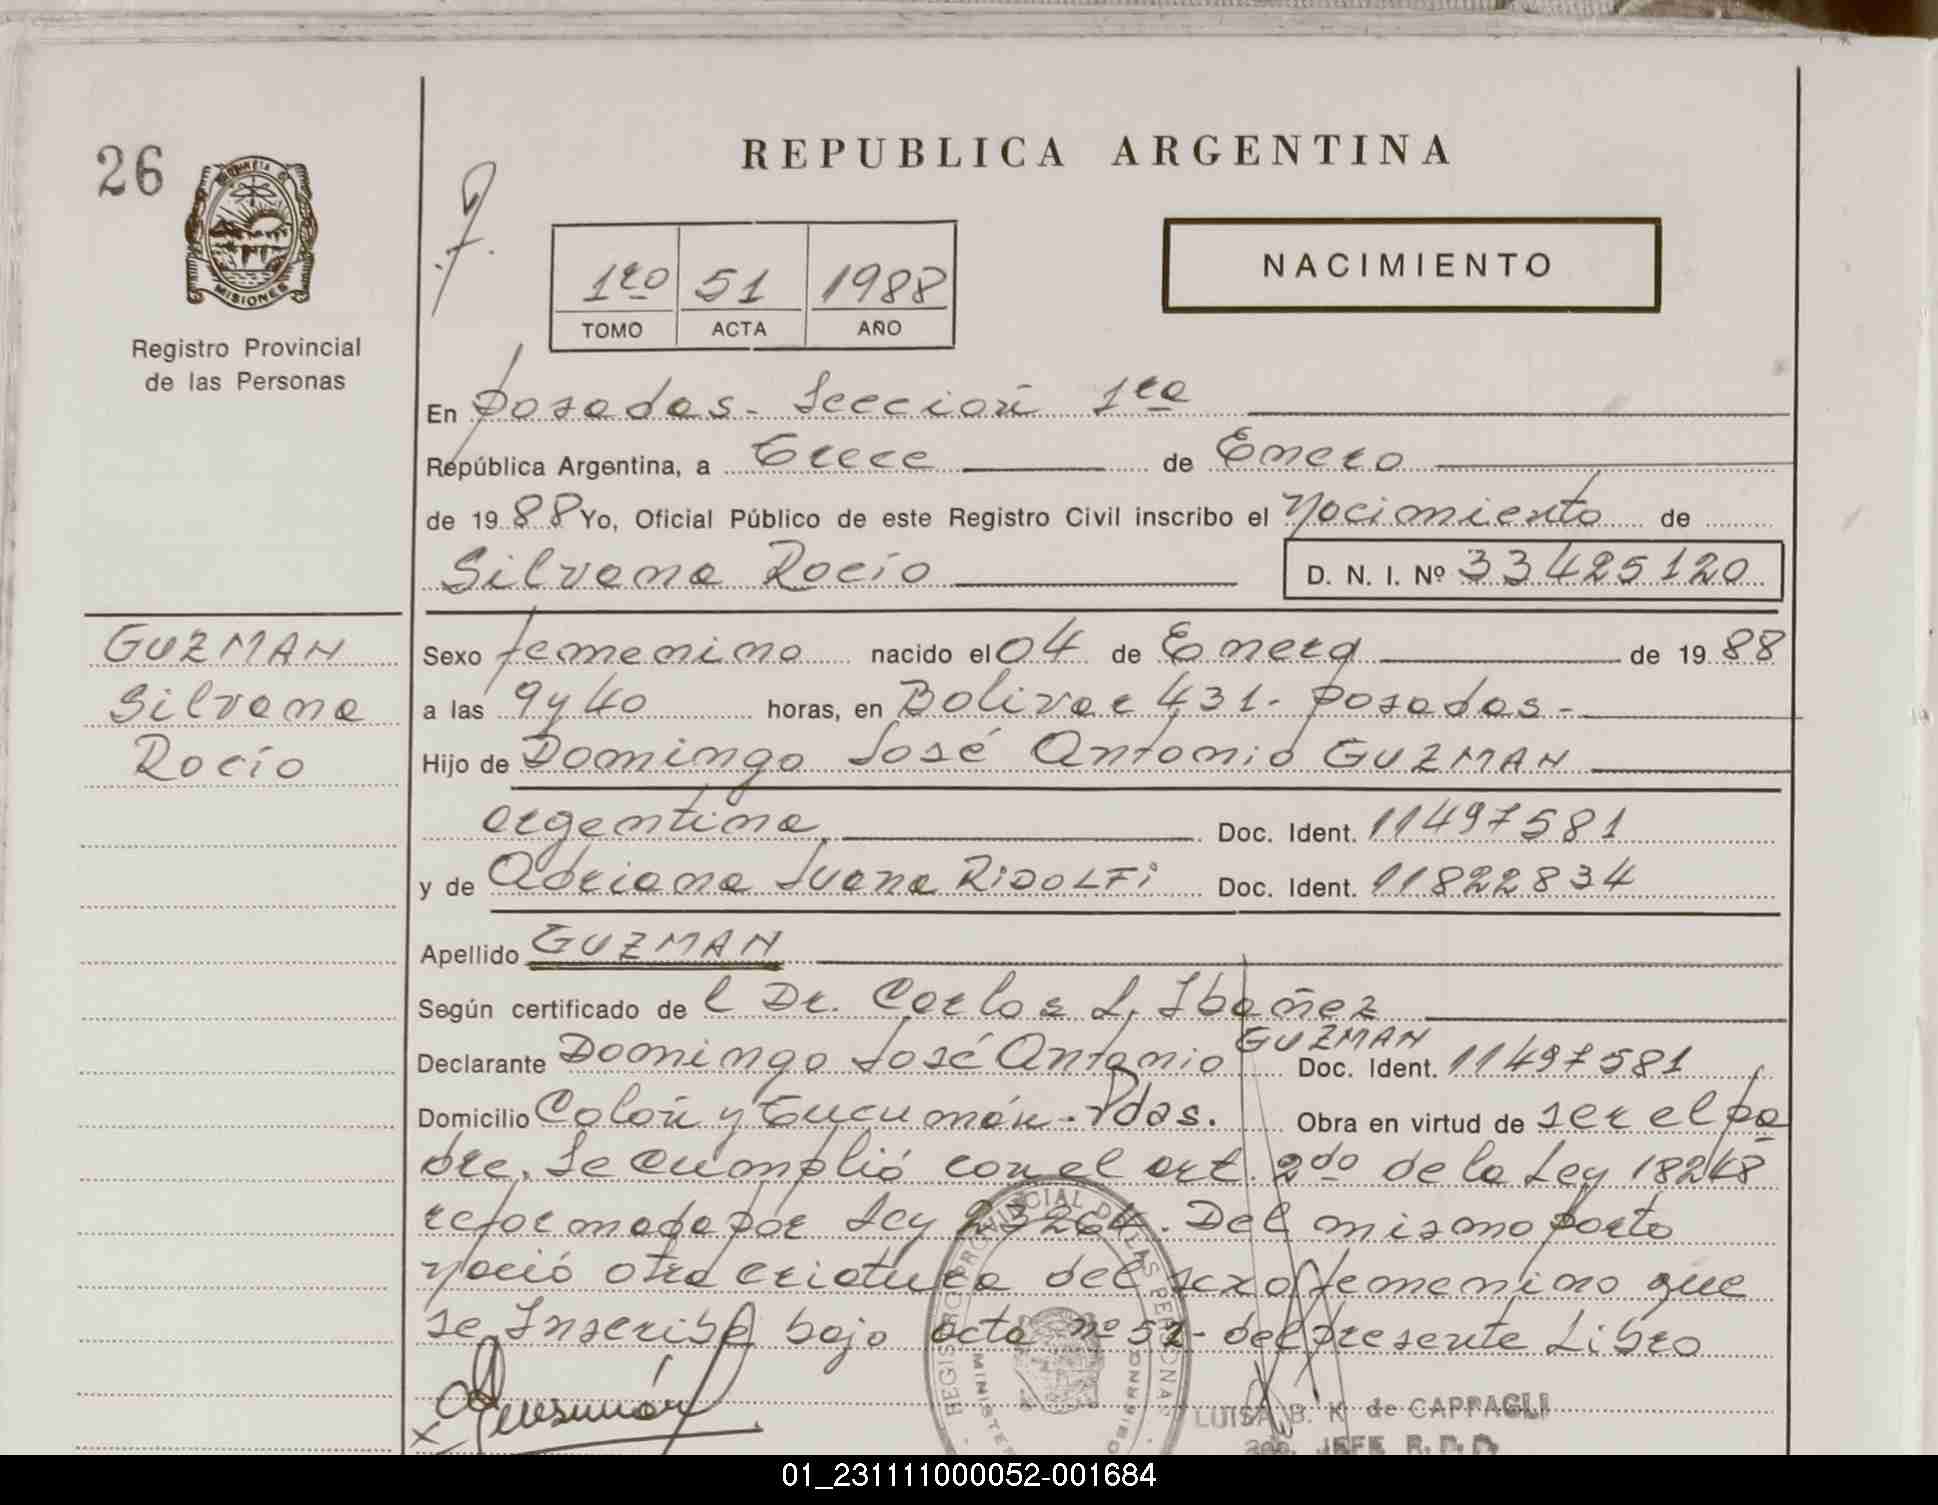 26
REPUBLICA ARGENTINA
MISIONES
Registro Provincial
de las Personas
1ro 51 1988
TOMO ACTA AÑO
NACIMIENTO
En Posadas - Sección 1ra
República Argentina, a Trece de Enero
de 1988 Yo, Oficial Público de este Registro Civil inscribo el Nacimiento de
Silvana Rocío D. N. I. Nº 33425120
GUZMAN
Silvana
Rocío
Sexo femenino nacido el 04 de Enero de 1988
a las 9 y 40 horas, en Bolivar 431 - Posadas -
Hijo de Domingo José Antonio GUZMAN
argentina Doc. Ident. 11497581
y de Adriana Juana RIDOLFI Doc. Ident. 11822834
Apellido GUZMAN
Según certificado de l Dr. Carlos L. Ibañez
Declarante Domingo José Antonio GUZMAN Doc. Ident. 11497581
Domicilio Colón y Tucumán - Pdas. Obra en virtud de ser el pa
dre. Se cumplió con el art. 2do de la Ley 18248
reformada por Ley 23264. Del mismo parto
nació otra criatura del sexo femenino que
se Inscribe bajo acta nº 52 - del presente Libro
REGISTRO PROVINCIAL DE LAS PERSONAS
LUISA B. K. de CAPPAGLI
JEFE R. P. P.
01_231111000052-001684